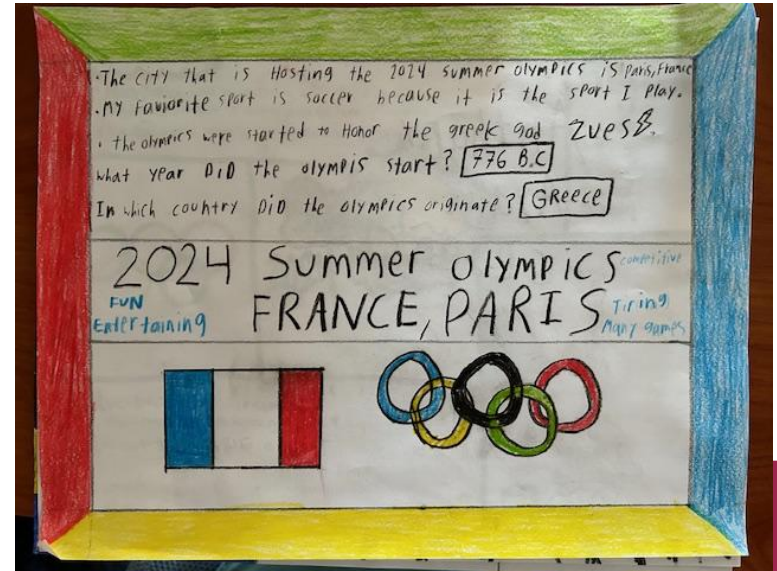 · The city that is Hosting the 2024 summer olympics is Paris, France
· My faviorite sport is soccer because it is the sport I Play.
· the olympics were started to Honor the greek god Zues.
what year DiD the olympis start? 776 B.C
In which country DiD the olympics originate? GReece
2024 Summer Olympics competitive
FUN FRANCE, PARIS Tiring
Entertaining Many games